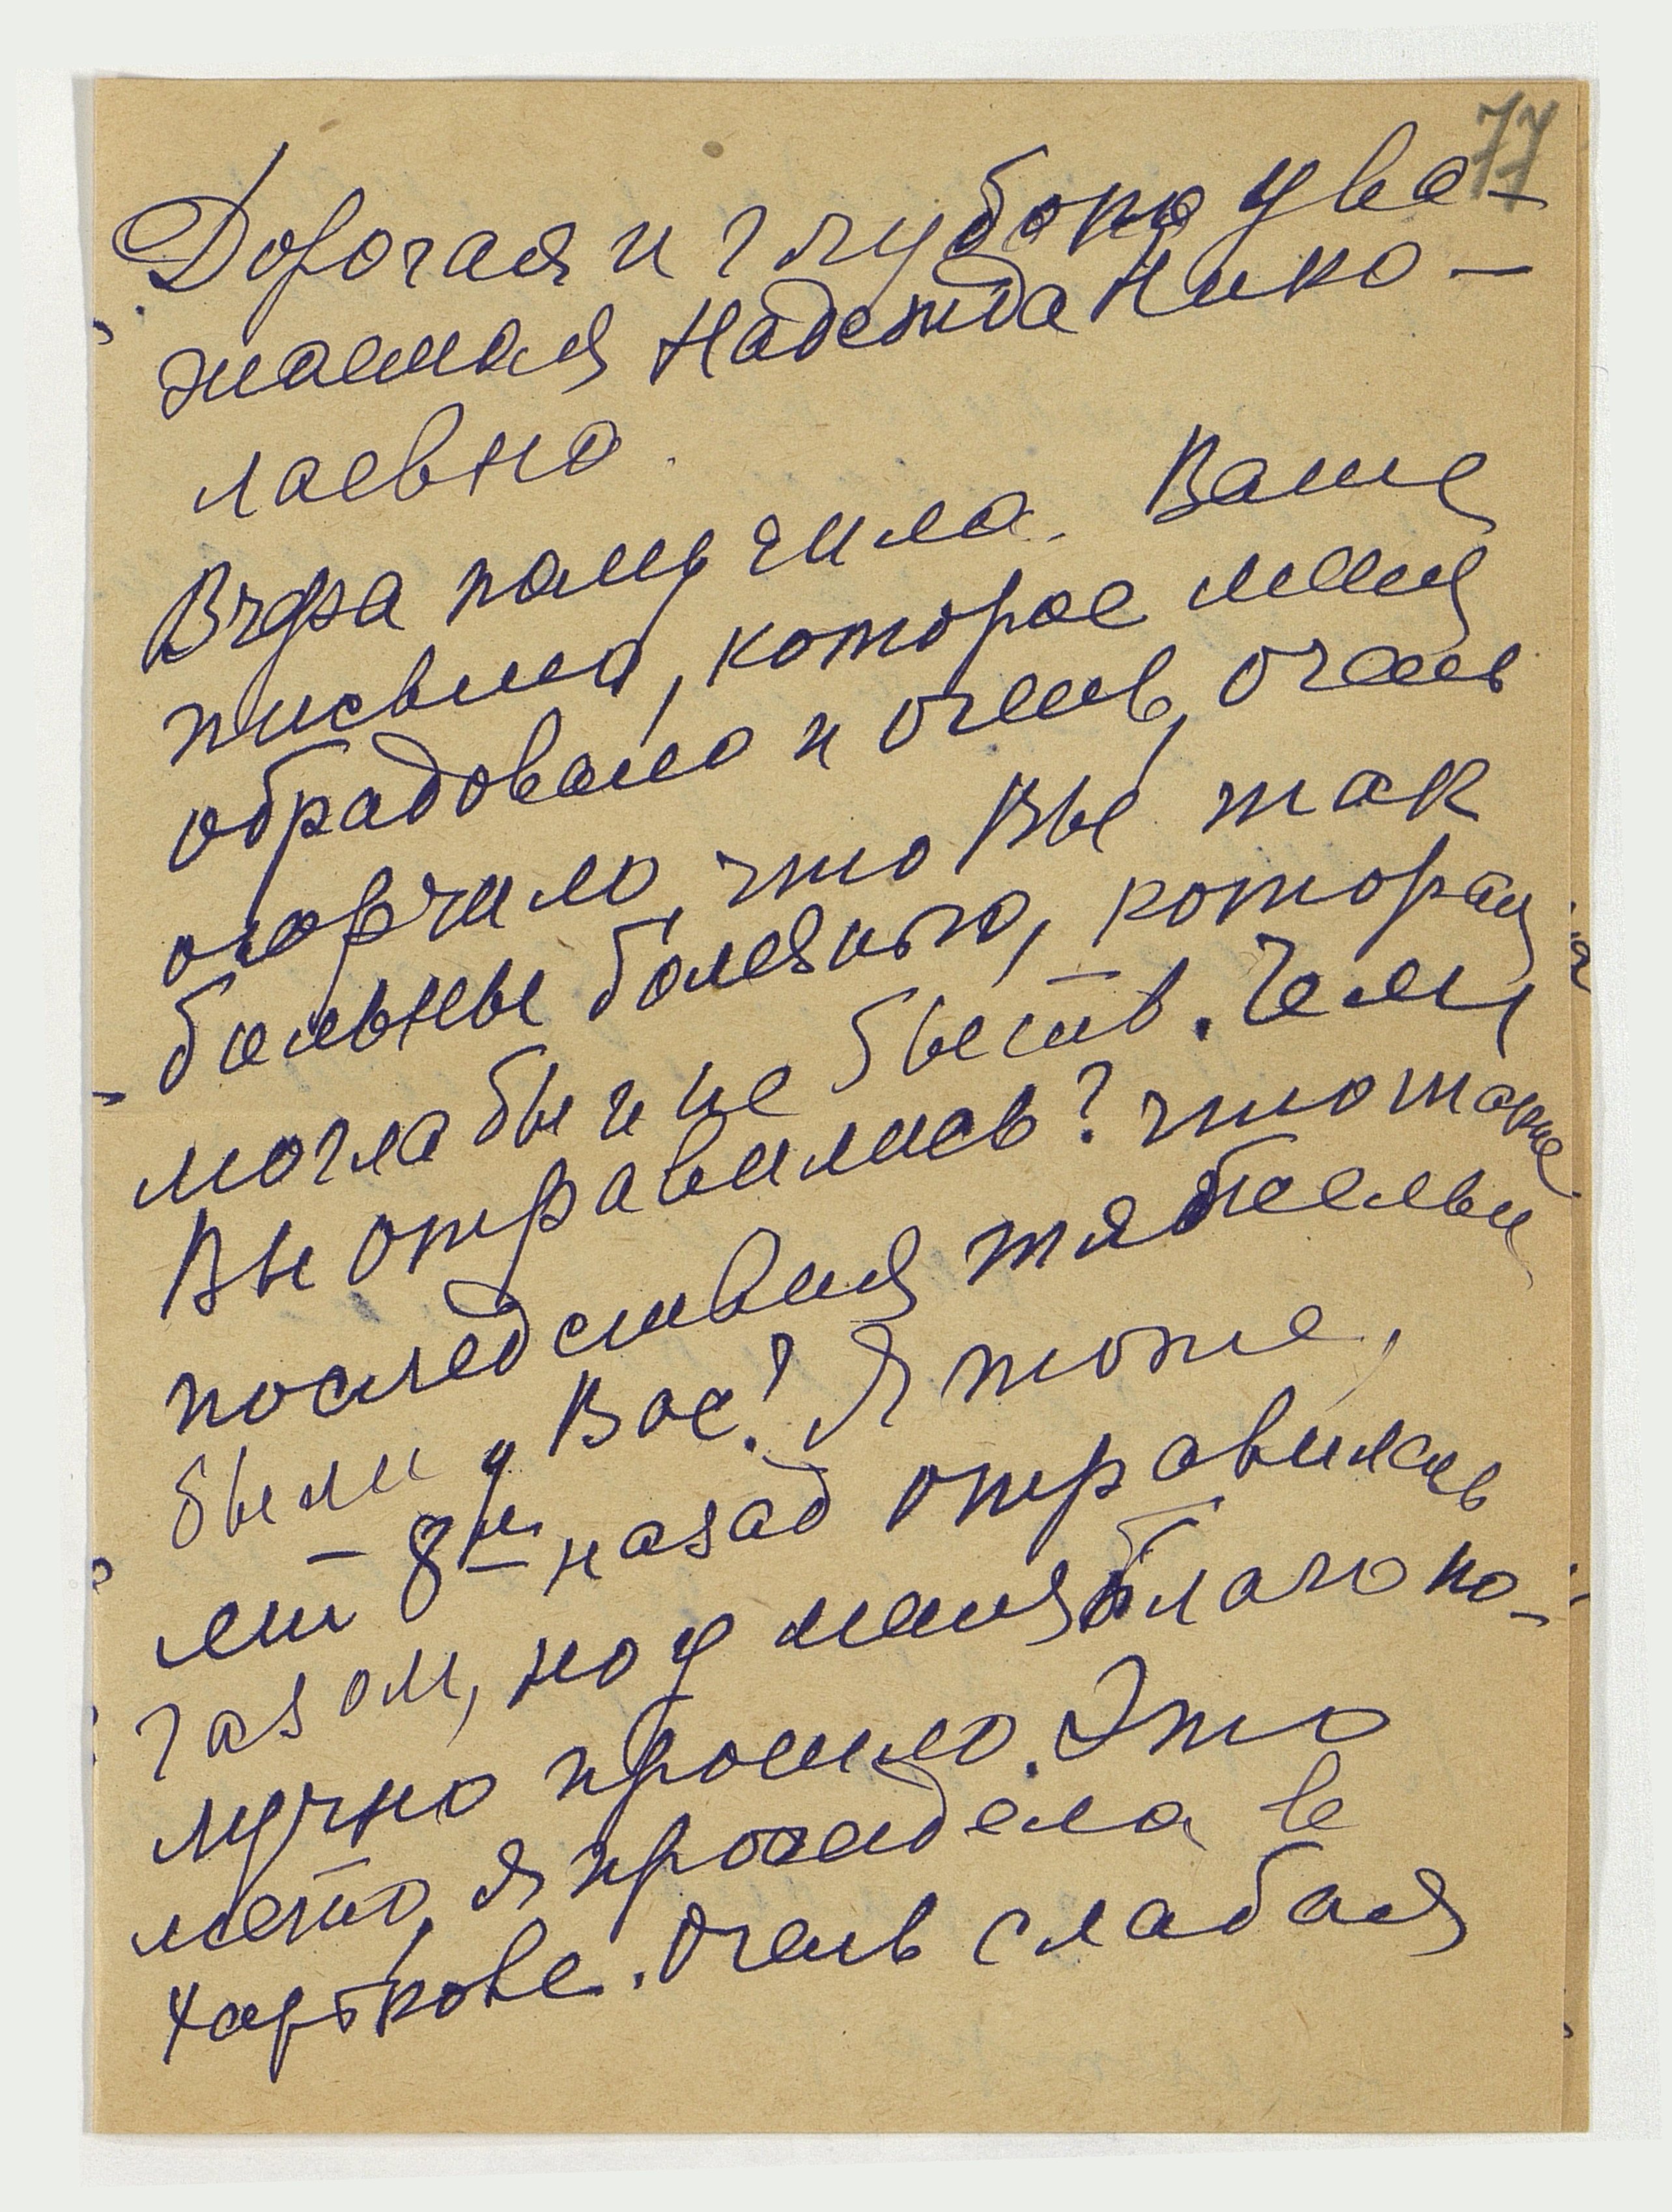 77
Дорогая и глубоко ува-
жаемая Надежда Нико-
лаевна.
Вчера получила Ваше
письмо, которое меня
обрадовало и очень, очень
огорчило, что Вы так
больны болезнью, которая
могла бы и не быть. Чем
Вы отравились? что такие
последствия тяжелые
были у Вас? Я тоже,
лет 8м назад отравилась
газом, но у меня благопо-
лучно прошло. Это
лето, я просидела в
Харькове. Очень слабая